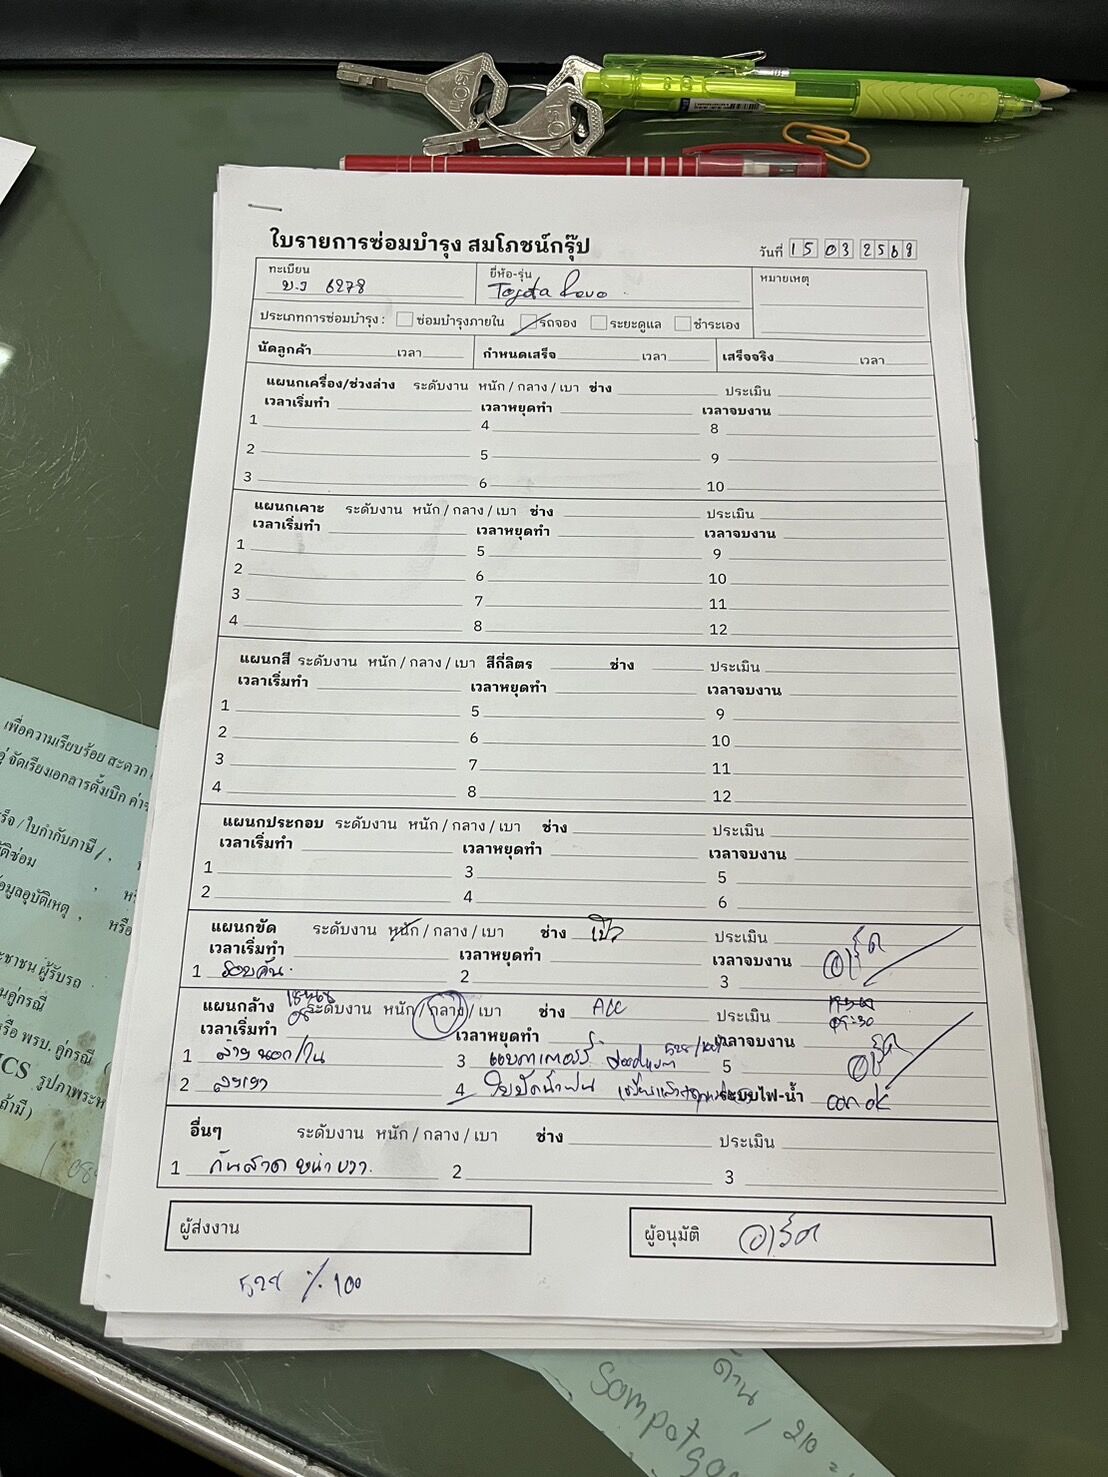 ใบรายการซ่อมบำรุง สมโภชน์กรุ๊ป
วันที่ 15 03 2569
ทะเบียน ยี่ห้อ-รุ่น หมายเหตุ
6278 Toyota Revo
ประเภทการซ่อมบำรุง : ซ่อมบำรุงภายใน รถจอง ระยะดูแล ชำระเอง
นัดลูกค้า เวลา กำหนดเสร็จ เวลา เสร็จจริง เวลา
แผนกเครื่อง/ช่วงล่าง ระดับงาน หนัก / กลาง / เบา ช่าง ประเมิน
เวลาเริ่มทำ เวลาหยุดทำ เวลาจบงาน
1 4 8
2 5 9
3 6 10
แผนกเคาะ ระดับงาน หนัก / กลาง / เบา ช่าง ประเมิน
เวลาเริ่มทำ เวลาหยุดทำ เวลาจบงาน
1 5 9
2 6 10
3 7 11
4 8 12
แผนกสี ระดับงาน หนัก / กลาง / เบา สีกี่ลิตร ช่าง ประเมิน
เวลาเริ่มทำ เวลาหยุดทำ เวลาจบงาน
1 5 9
2 6 10
3 7 11
4 8 12
แผนกประกอบ ระดับงาน หนัก / กลาง / เบา ช่าง ประเมิน
เวลาเริ่มทำ เวลาหยุดทำ เวลาจบงาน
1 3 5
2 4 6
แผนกขัด ระดับงาน หนัก / กลาง / เบา ช่าง ประเมิน
เวลาเริ่มทำ เวลาหยุดทำ เวลาจบงาน
1 รอบคัน 2 3
แผนกล้าง ระดับงาน หนัก / กลาง / เบา ช่าง ประเมิน
เวลาเริ่มทำ เวลาหยุดทำ เวลาจบงาน
09:30
1 ล้าง นอก/ใน 3 แบตเตอร์รี่ 5
2 4 ใบปัดน้ำฝน ระบบไฟ-น้ำ ok
อื่นๆ ระดับงาน หนัก / กลาง / เบา ช่าง ประเมิน
1 กันสาด หน้า ขวา 2 3
ผู้ส่งงาน ผู้อนุมัติ
% 100
เพื่อความเรียบร้อย สะดวก
จัดเรียงเอกสารตั้งเบิก
/ ใบกำกับภาษี
มูลอุบัติเหตุ , หรือ
ผู้รับรถ
คู่กรณี
หรือ พรบ. คู่กรณี
ด้าน / 210